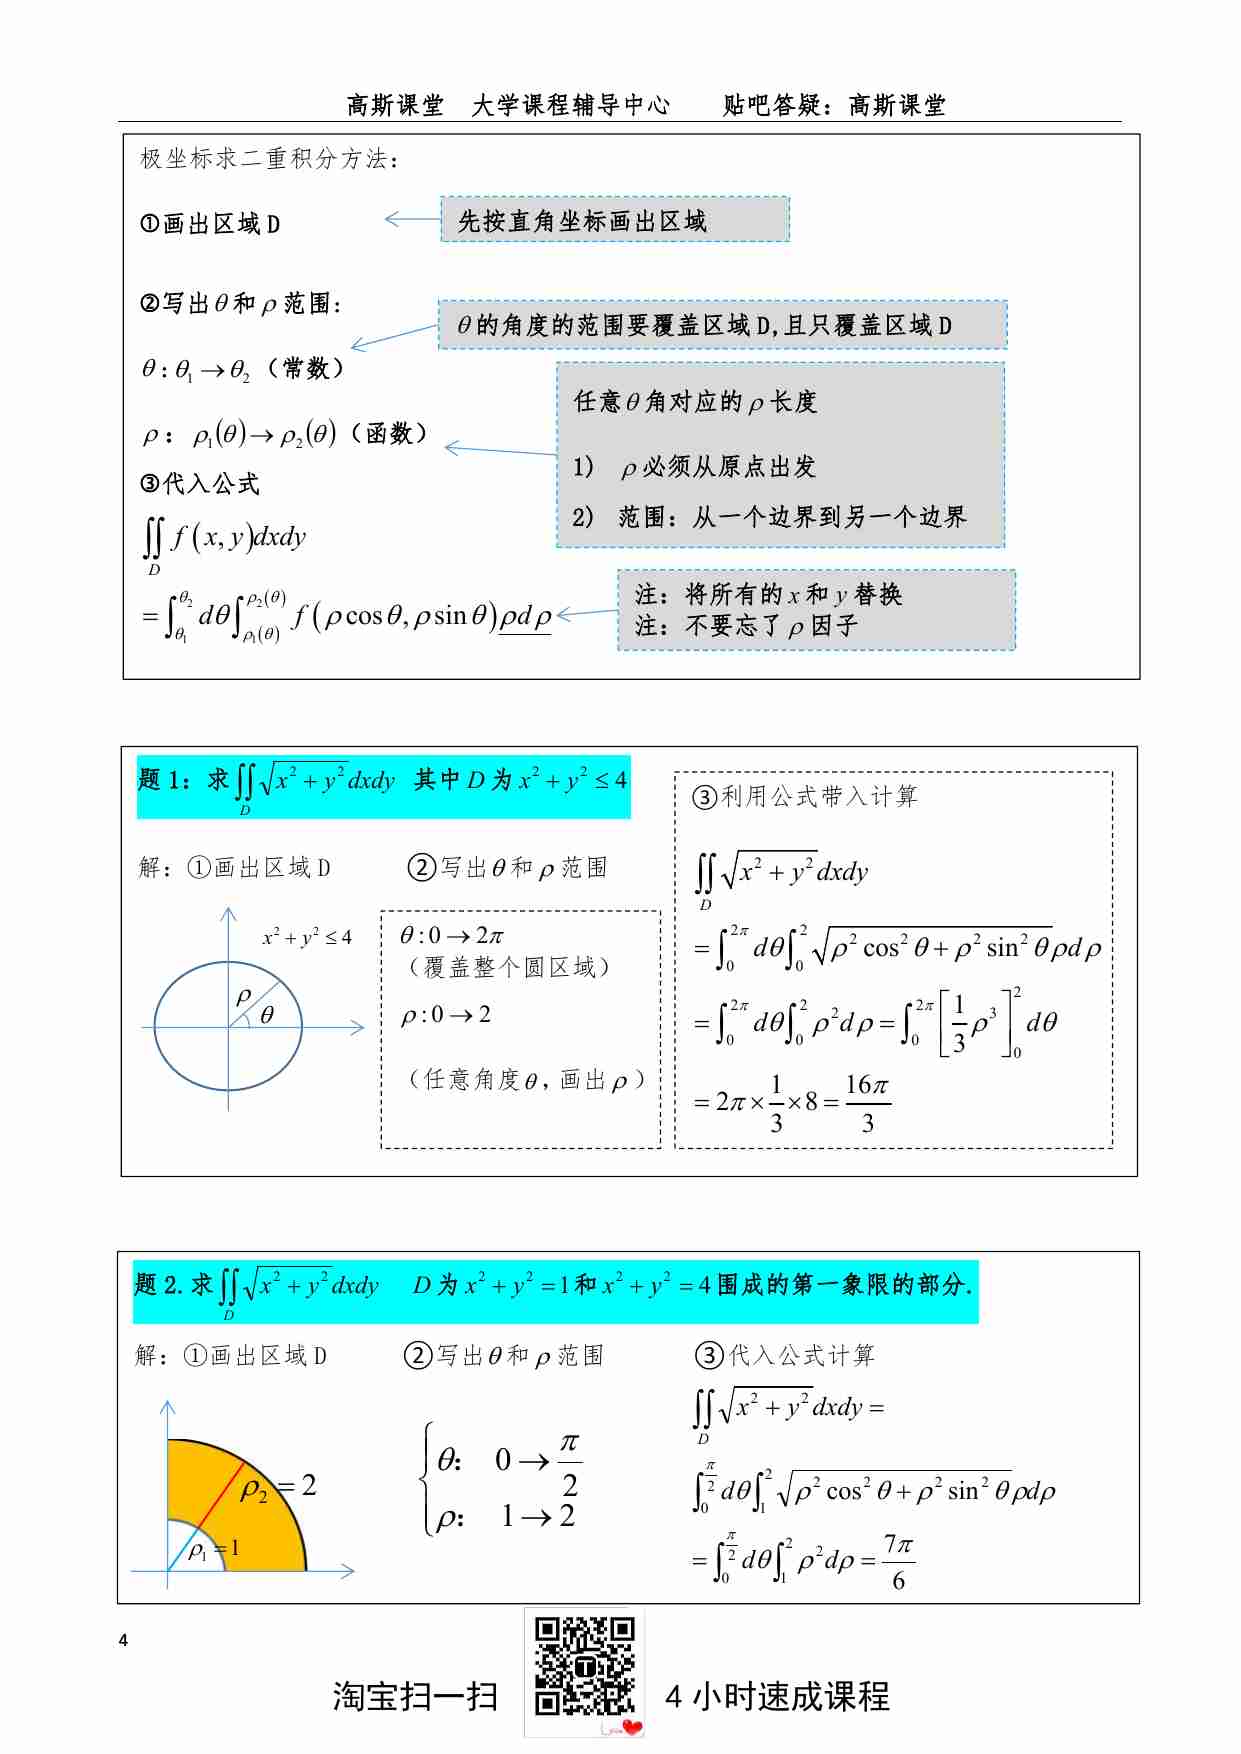 高斯课堂　大学课程辅导中心　　贴吧答疑：高斯课堂
极坐标求二重积分方法：
①画出区域 D
先按直角坐标画出区域
②写出θ和ρ范围：
θ的角度的范围要覆盖区域 D,且只覆盖区域 D
θ:θ₁→θ₂（常数）
ρ：ρ₁(θ)→ρ₂(θ)（函数）
任意θ角对应的ρ长度
1) ρ必须从原点出发
2) 范围：从一个边界到另一个边界
③代入公式
∬_D f(x,y)dxdy
=∫_{θ₁}^{θ₂} dθ∫_{ρ₁(θ)}^{ρ₂(θ)} f(ρcosθ,ρsinθ)ρdρ
注：将所有的 x 和 y 替换
注：不要忘了ρ因子
题 1：求∬_D √(x²+y²)dxdy 其中 D 为 x²+y²≤4
解：①画出区域 D
x²+y²≤4
ρ
θ
②写出θ和ρ范围
θ:0→2π
（覆盖整个圆区域）
ρ:0→2
（任意角度θ，画出ρ）
③利用公式带入计算
∬_D √(x²+y²)dxdy
=∫_0^{2π} dθ∫_0^2 √(ρ²cos²θ+ρ²sin²θ)ρdρ
=∫_0^{2π} dθ∫_0^2 ρ²dρ=∫_0^{2π} [1/3 ρ³]_0^2 dθ
=2π×1/3×8=16π/3
题 2.求∬_D √(x²+y²)dxdy D 为 x²+y²=1和 x²+y²=4围成的第一象限的部分.
解：①画出区域 D
ρ₂=2
ρ₁=1
②写出θ和ρ范围
θ： 0→π/2
ρ： 1→2
③代入公式计算
∬_D √(x²+y²)dxdy=
∫_0^{π/2} dθ∫_1^2 √(ρ²cos²θ+ρ²sin²θ)ρdρ
=∫_0^{π/2} dθ∫_1^2 ρ²dρ=7π/6
4
淘宝扫一扫
4 小时速成课程